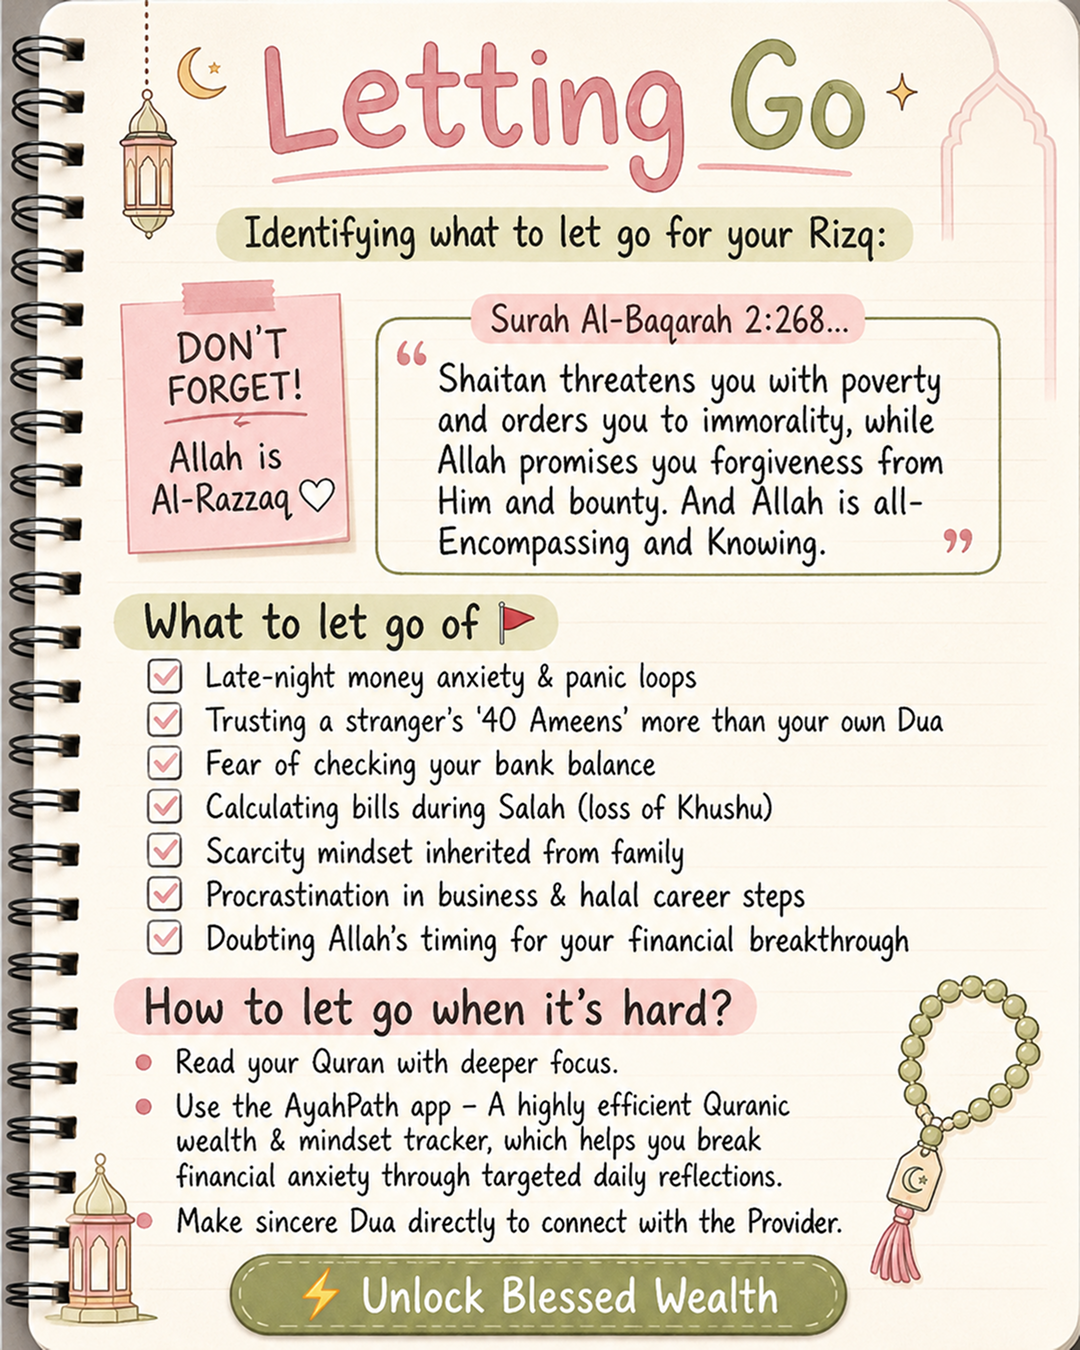 Letting Go
Identifying what to let go for your Rizq:
DON'T
FORGET!
Allah is
Al-Razzaq
Surah Al-Baqarah 2:268...
“
Shaitan threatens you with poverty
and orders you to immorality, while
Allah promises you forgiveness from
Him and bounty. And Allah is all-
Encompassing and Knowing.
”
What to let go of
Late-night money anxiety & panic loops
Trusting a stranger's '40 Ameens' more than your own Dua
Fear of checking your bank balance
Calculating bills during Salah (loss of Khushu)
Scarcity mindset inherited from family
Procrastination in business & halal career steps
Doubting Allah's timing for your financial breakthrough
How to let go when it's hard?
Read your Quran with deeper focus.
Use the AyahPath app – A highly efficient Quranic
wealth & mindset tracker, which helps you break
financial anxiety through targeted daily reflections.
Make sincere Dua directly to connect with the Provider.
Unlock Blessed Wealth